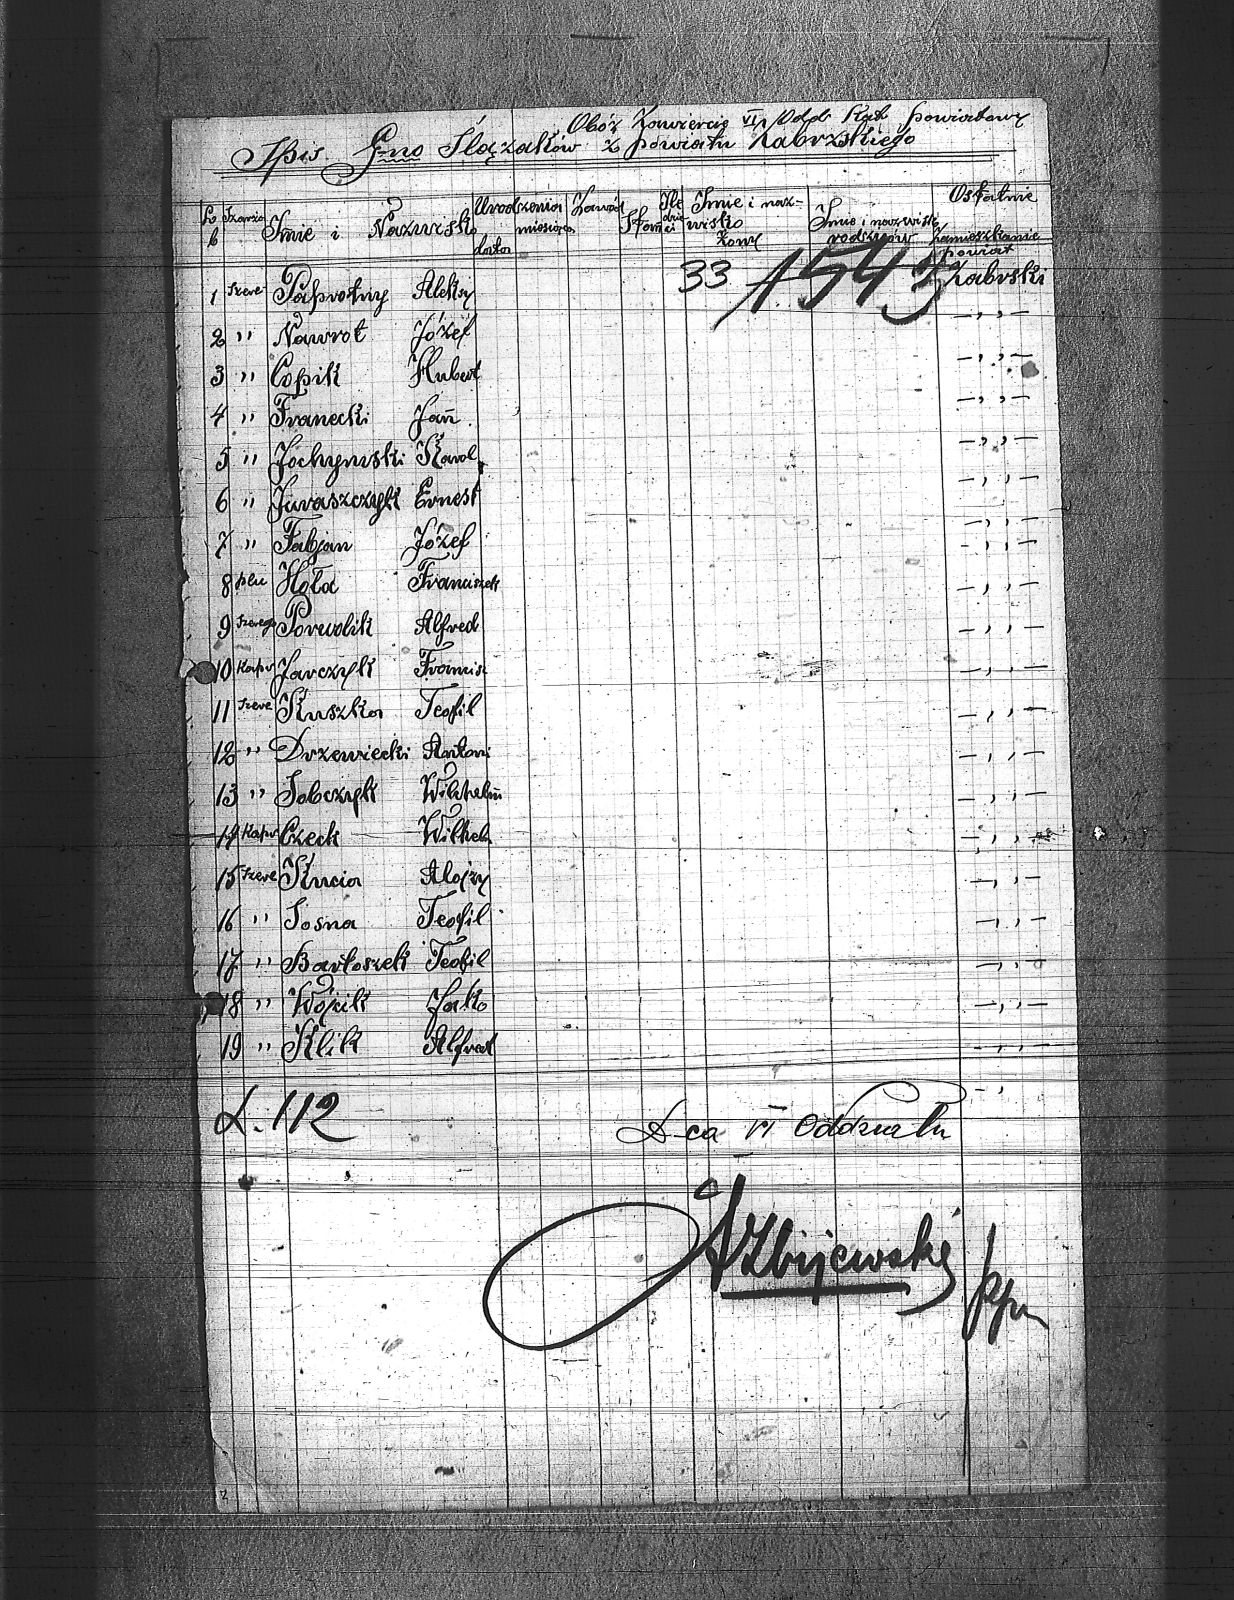 Obóz Zawiercie VI Oddz Rat powiatowy
Spis G-no Ślązaków z powiatu Zabrzskiego
Lb Szarża Imie i Nazwisko Urodzenia data miesiąca Zawód Stan Ile dzieci Imie i nazwisko żony Imie i nazwisko rodziców Ostatnie zamieszkanie powiat
1 Szere Paprotny Aleksy 33 1543 Zabrski
2 " Nawrot Józef - , , -
3 " Copik Hubert - , , -
4 " Franecki Jan - , , -
5 " Jochymski Karol - , , -
6 " Juraszczyk Ernest - , , -
7 " Fabjan Józef - , , -
8 plu Hoła Franciszek - , , -
9 Szereg Porwolik Alfred - , , -
10 Kapr Jarczyk Francisz - , , -
11 Szere Kuszka Teofil - , , -
12 " Drzewiecki Antoni - , , -
13 " Sobczyk Wilhelm - , , -
14 Kapr Czech Wilhelm - , , -
15 Szere Kucia Alojzy - , , -
16 " Sosna Teofil - , , -
17 " Bartoszek Teofil - , , -
18 " Wójcik Jakó - , , -
19 " Klik Alfred - , , -
L. 112
D-ca VI Oddziału
ppr